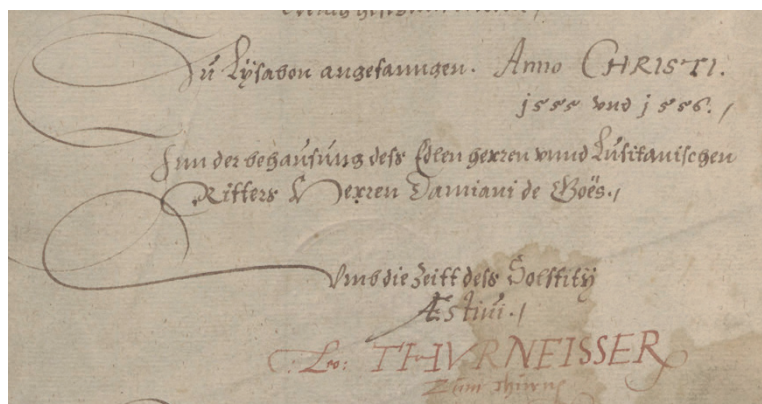 Zu Lÿsabon angefanngen. Anno CHRISTI.
1555 vnd 1556./
Inn der behausúng dess Edlen herren vnnd Lusitanischen
Ritters Herren Damiani de Goës./
Vmb die Zeitt dess Solstitÿ
Æstiui./
Leo: THVRNEISSER
Zum Thurn